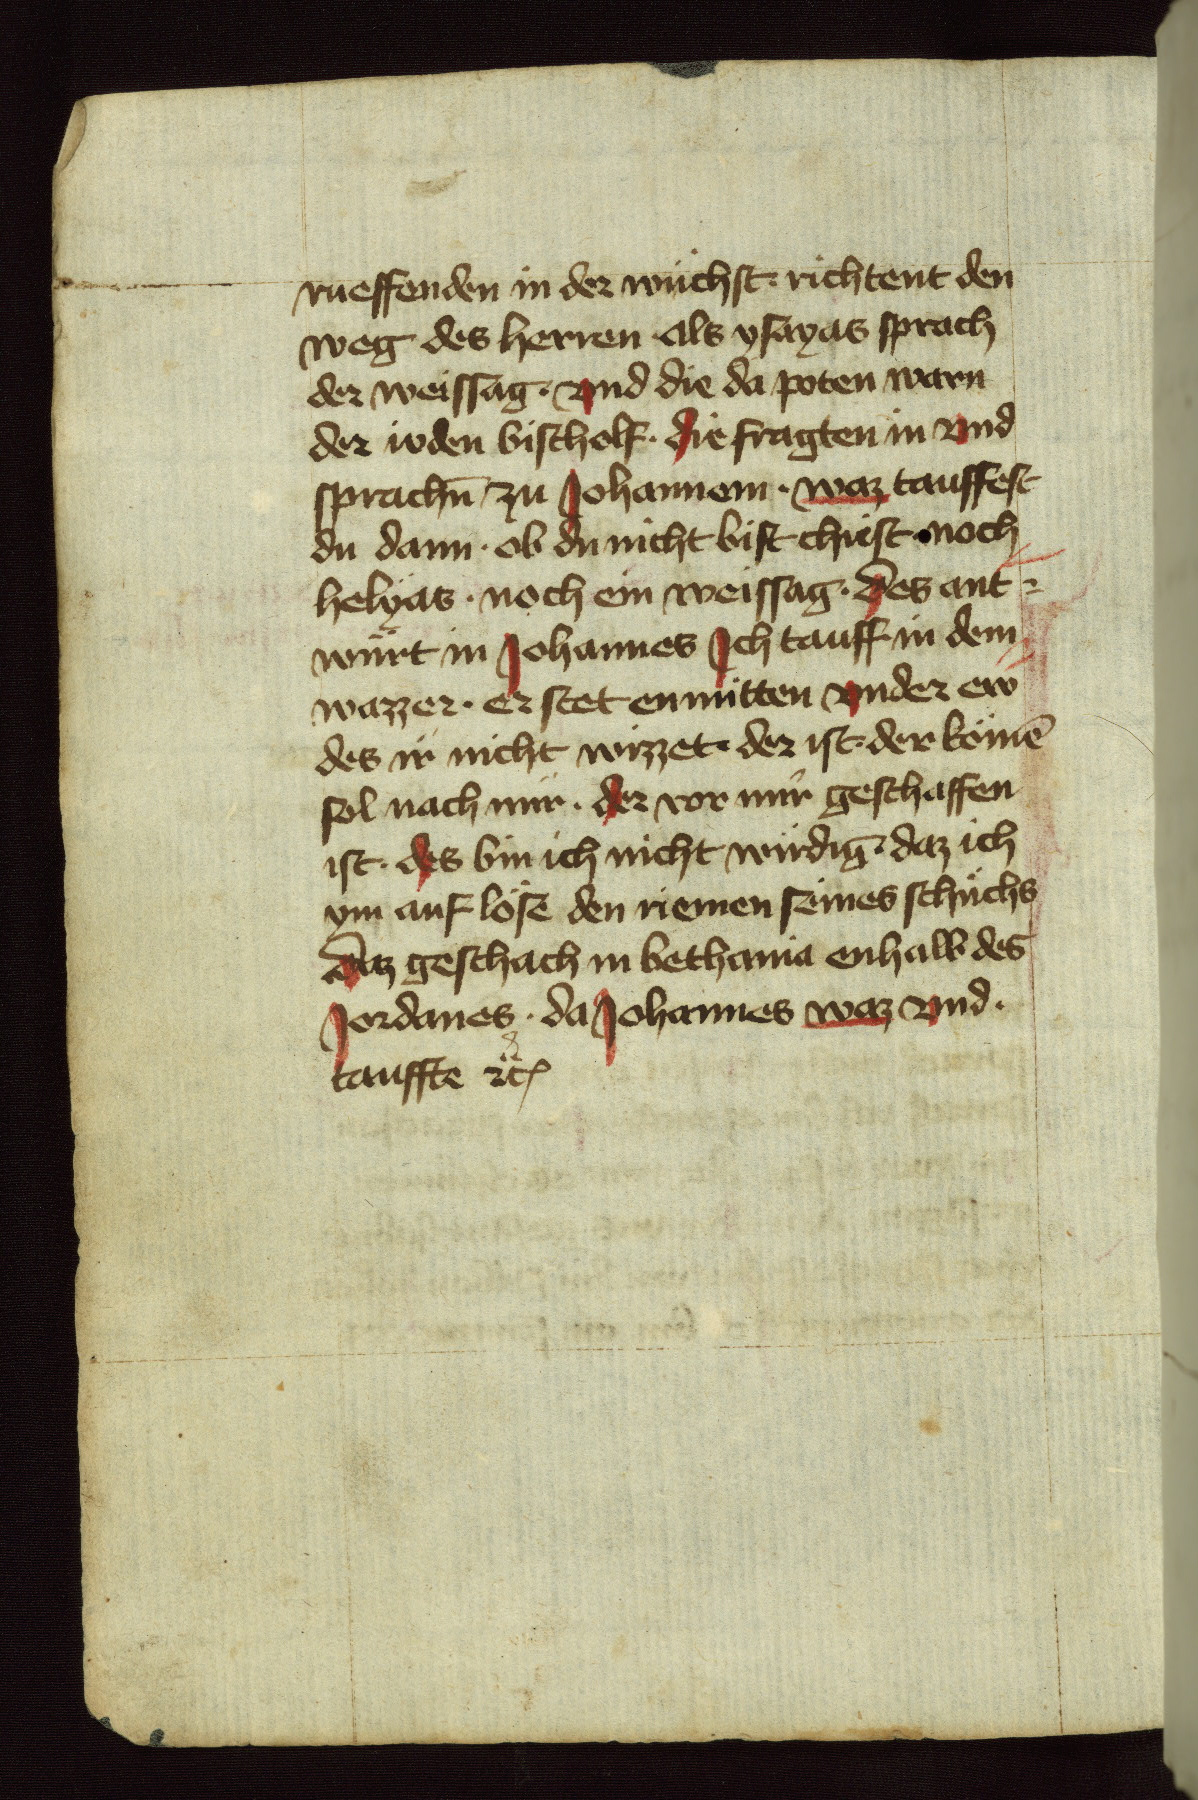 rueffenden in der wüchst · richtent den
weg des herren · als ysayas sprach
der weissag · vnd die da poten warn
der iuden bischolf · die fragten in vnd
sprachn̄ zu Johannem · waz tauffest
du dann · ob du nicht bist christ · noch
helÿas · noch ein weissag · des ant⸗
wůrt in Johannes Ich tauff in dem
wazzer · er stet enmitten vnder ew
des ir nicht wizzet · der ist · der kömē
sol nach mir · der vor mir geschaffen
ist · des bin ich nicht wirdig · daz ich
ym auf löse den riemen seines schůchs
daz geschach in bethania enhalb des
Jordanes · da Johannes waz vnd ·
tauffte ꝛcͣ